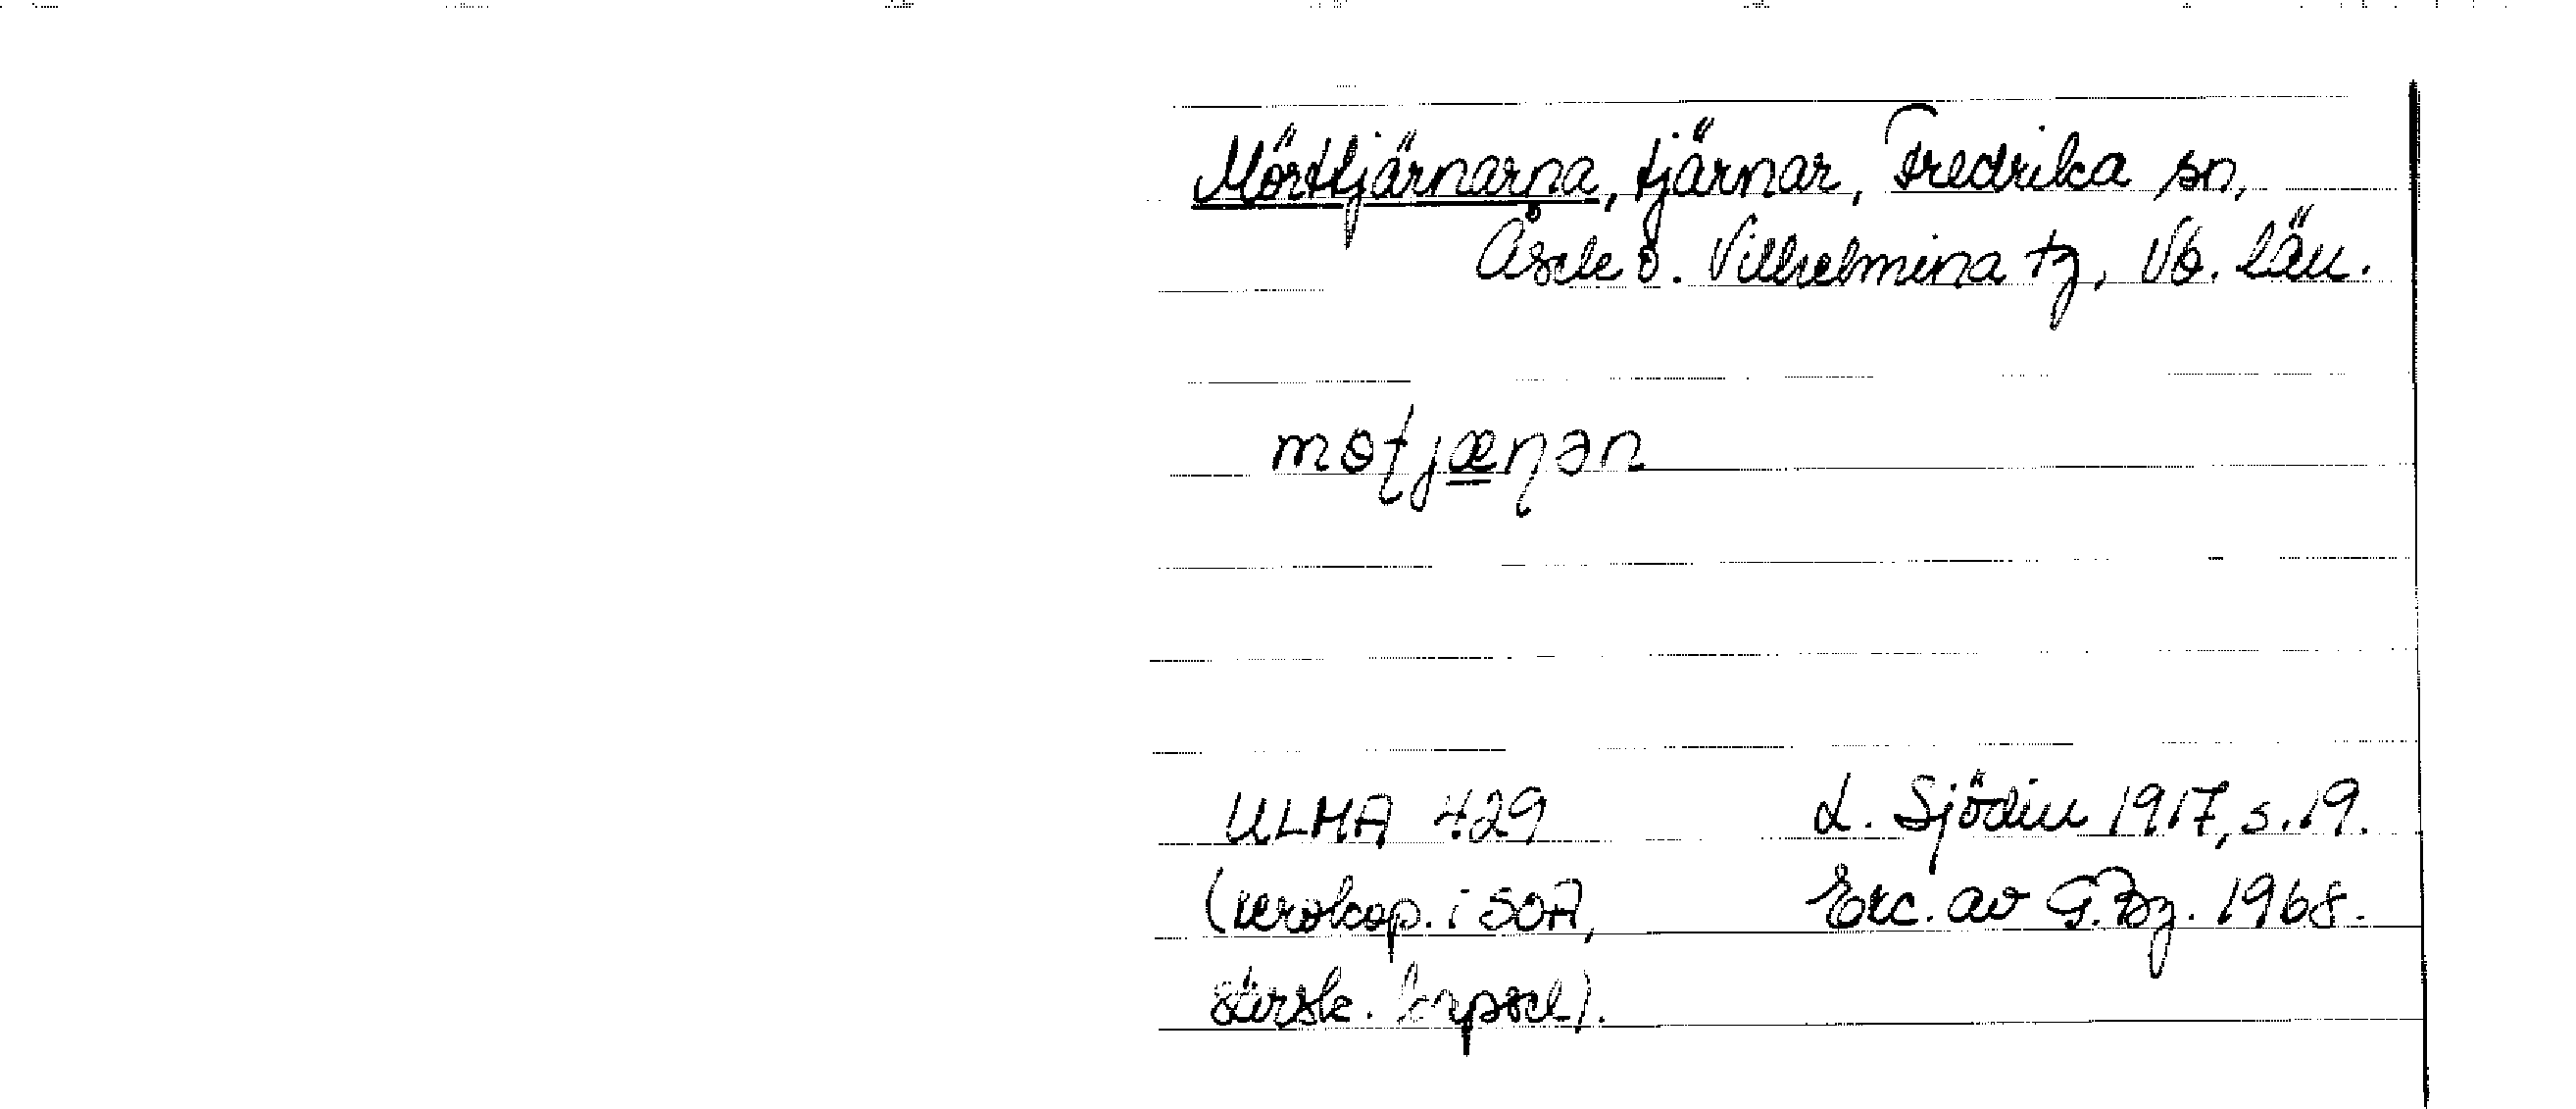 Mörttjärnarna, tjärnar, Fredrika sn,
Åsele o. Vilhelmina tg, Vb. län.
mɵʈjæɳən
ULMA 429 L. Sjödin 1917, s. 19.
(xerokop. i SOA, Exc. av G. Bg. 1968.
särsk. kapsel).